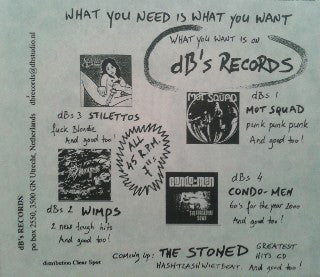 WHAT YOU NEED IS WHAT YOU WANT
WHAT YOU WANT IS ON
dB's RECORDS
dBs 3 STILETTOS
fuck Blondie
And good too!
dBs 1
MOT SQUAD
punk punk punk
And good too!
MOT SQUAD
ALL
45 RPM
7"
dBs 2 WIMPS
2 new tough hits
And good too!
CONDO-MEN
dBs 4
CONDO-MEN
60's for the year 2000
And good too!
COMING UP: THE STONED GREATEST
HITS CD
HASHTRASHWIETBEAT
And good too!
dB's RECORDS
po box 2550, 3500 GN Utrecht, Netherlands dbrecords@dbstudio.nl
distribution Clear Spot